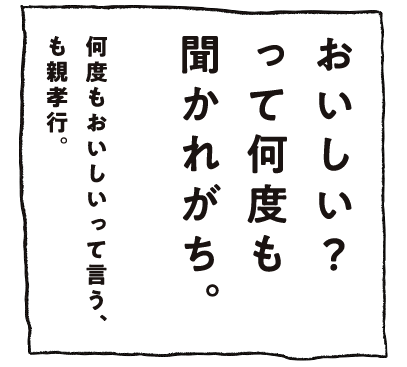 おいしい？
って何度も
聞かれがち。
何度もおいしいって言う、
も親孝行。